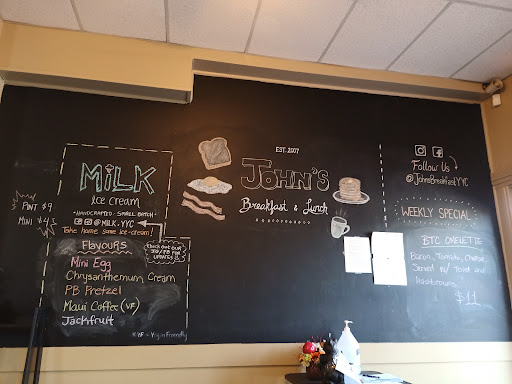 MILK
Ice Cream
•HANDCRAFTED • SMALL BATCH•
@MILK.YYC
Take home some ice-cream!
PINT $9
MINI $4.5
Flavours
Check out our
UPDATES
Mini Egg
Chrysanthemum Cream
PB Pretzel
Maui Coffee (VF)
Jackfruit
*VF = Vegan Friendly
EST. 2007
JOHN'S
Breakfast & Lunch
Follow Us
@JohnsBreakfastYYC
WEEKLY SPECIAL
BTC OMELETTE
Bacon, Tomato, Cheese
Served w/ Toast and
Hashbrowns
$11